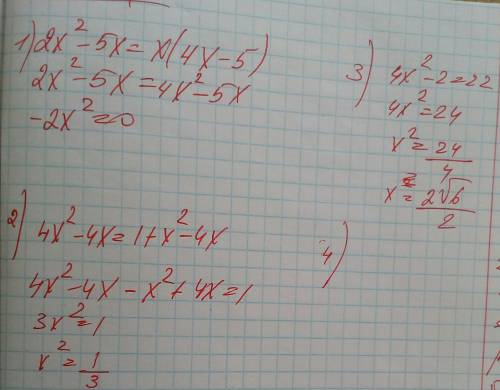 1) 2x² - 5x = x(4x - 5)
2x² - 5x = 4x² - 5x
-2x² = 0
2) 4x² - 4x = 1 + x² - 4x
4x² - 4x - x² + 4x = 1
3x² = 1
x² = 1/3
3) 4x² - 2 = 22
4x² = 24
x² = 24/4
x = 2√6/2
4)